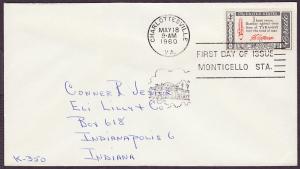 CHARLOTTESVILLE
MAY 18
9-AM
1960
VA.
UNITED STATES
FIRST DAY OF ISSUE
MONTICELLO STA.
CONNER P.
ELI LILLY & CO
BOX 618
INDIANAPOLIS 6
INDIANA
K-350